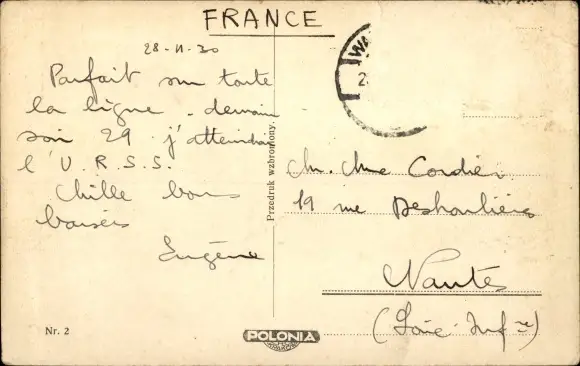 FRANCE
28-11-30
Parfait sur toute
la ligne. demain
soir 29 j'atteindrai
l'U.R.S.S.
Mille bons
baisers
Eugène
Przedruk wzbroniony.
WA
2
M. Mme Cordier
19 rue Deshoulières
Nantes
(Loire Infre)
Nr. 2
POLONIA